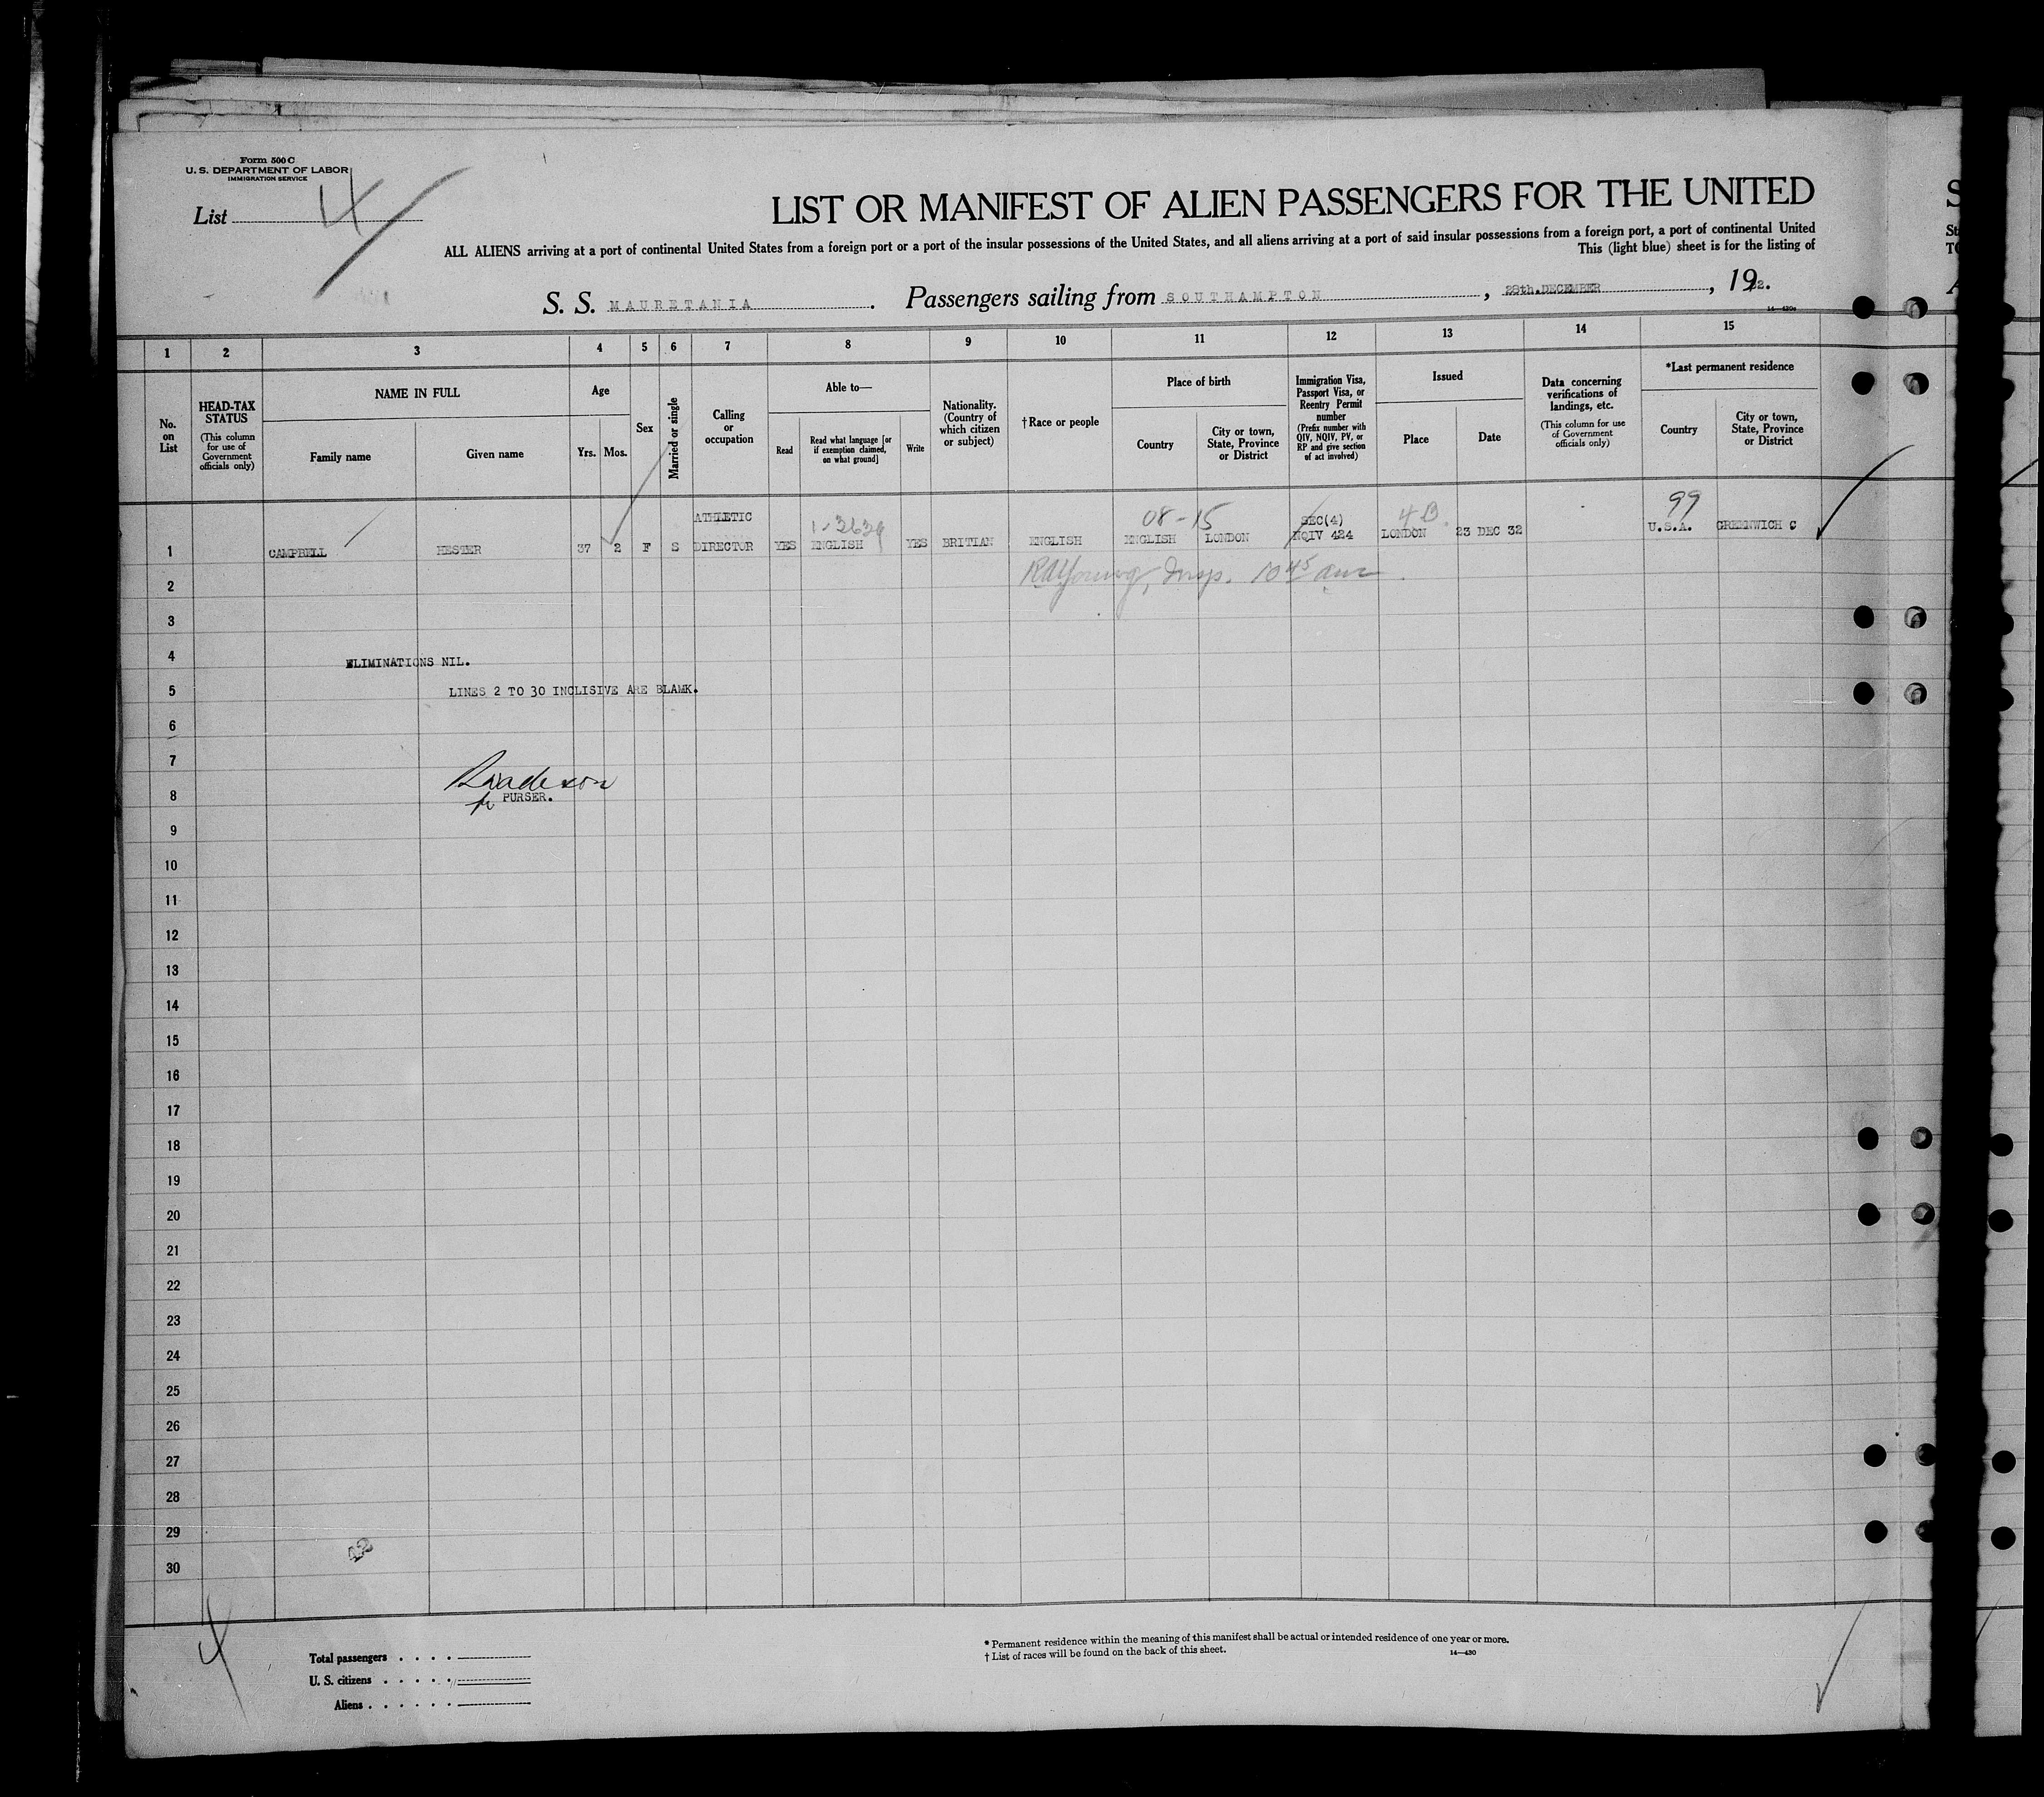 Form 500 C
U. S. DEPARTMENT OF LABOR
IMMIGRATION SERVICE
List 4
LIST OR MANIFEST OF ALIEN PASSENGERS FOR THE UNITED
ALL ALIENS arriving at a port of continental United States from a foreign port or a port of the insular possessions of the United States, and all aliens arriving at a port of said insular possessions from a foreign port, a port of continental United
This (light blue) sheet is for the listing of
S. S. MAURETANIA. Passengers sailing from SOUTHAMPTON, 28th.DECEMBER, 1932.
14—430
1 2 3 4 5 6 7 8 9 10 11 12 13 14 15
No. on List
HEAD-TAX STATUS
(This column for use of Government officials only)
NAME IN FULL
Family name
Given name
Age
Yrs. Mos.
Sex
Married or single
Calling or occupation
Able to—
Read
Read what language [or if exemption claimed, on what ground]
Write
Nationality. (Country of which citizen or subject)
† Race or people
Place of birth
Country
City or town, State, Province or District
Immigration Visa, Passport Visa, or Reentry Permit number
(Prefix number with QIV, NQIV, PV, or RP and give section of act involved)
Issued
Place
Date
Data concerning verifications of landings, etc.
(This column for use of Government officials only)
*Last permanent residence
Country
City or town, State, Province or District
ATHLETIC 1-3639 08-15 SEC(4) 4B 99
1 CAMPBELL HESTER 37 2 F S DIRECTOR YES ENGLISH YES BRITIAN ENGLISH ENGLISH LONDON NQIV 424 LONDON 23 DEC 32 U.S.A. GREENWICH C
2 RAYoung, Insp. 10 45 am
3
4 ELIMINATIONS NIL.
5 LINES 2 TO 30 INCLISIVE ARE BLAMK.
6
7
8 PURSER.
9
10
11
12
13
14
15
16
17
18
19
20
21
22
23
24
25
26
27
28
29
30
4
Total passengers
U. S. citizens
Aliens
* Permanent residence within the meaning of this manifest shall be actual or intended residence of one year or more.
† List of races will be found on the back of this sheet.
14—430